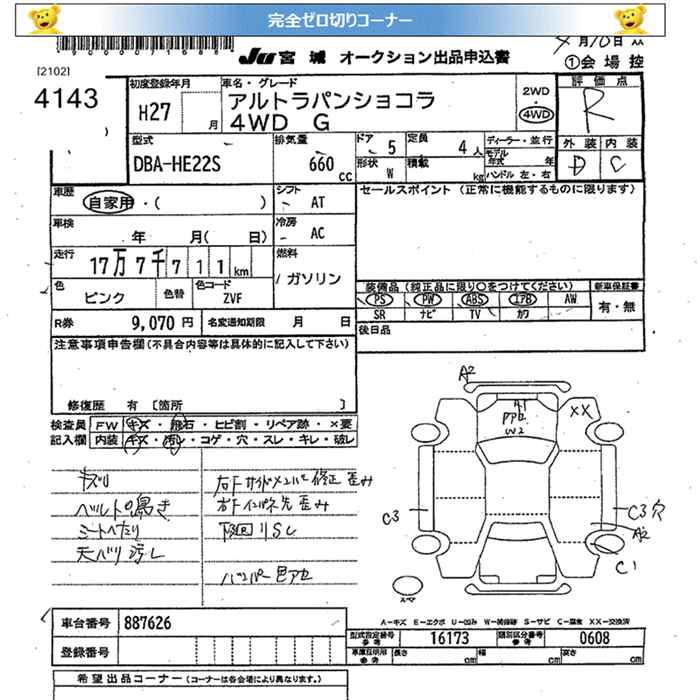 完全ゼロ切りコーナー
JU 宮城 オークション出品申込書
4月10日 AA
[2102]
①会場控
4143
初度登録年月 H27 月
車名・グレード アルトラパンショコラ
4WD G
2WD・4WD
評価点 R
外装 D 内装 C
型式 DBA-HE22S
排気量 660 cc
ドア 5
形状 W
定員 4人
積載 kg
ディーラー・並行
モデル年式 年
ハンドル 左・右
車歴 自家用・( )
シフト AT
セールスポイント (正常に機能するものに限ります)
車検 年 月( 日)
冷房 AC
走行 17万7千711km
燃料 ガソリン
色 ピンク 色替
色コード ZVF
装備品(純正品に限り○をつけてください) 新車保証書
PS PW ABS エアB AW 有・無
SR ナビ TV カワ
R券 9,070円 名変通知期限 月 日
後日品
注意事項申告欄(不具合内容等は具体的に記入して下さい)
修復歴 有 [箇所 ]
検査員 FW キズ・飛石・ヒビ割・リペア跡・×要
記入欄 内装 キズ・汚れ・コゲ・穴・スレ・キレ・破レ
キズリ
ベルト鳴き
シートへたり
天バリ汚レ
右Fサイドメンバー修正 歪み
右Fインパネ先 歪み
下回りSC
バンパー色アセ
A2
AT
W2
XX
C3
C3穴
A2
C1
A-キズ E-エクボ U-凹み W-補修跡 S-サビ C-腐食 XX-交換済
車台番号 887626
登録番号
型式指定番号 参考 16173
類別区分番号 参考 0608
車庫証明用 参考 長さ cm 幅 cm 高さ cm
希望出品コーナー(コーナーは各会場により異なります。)